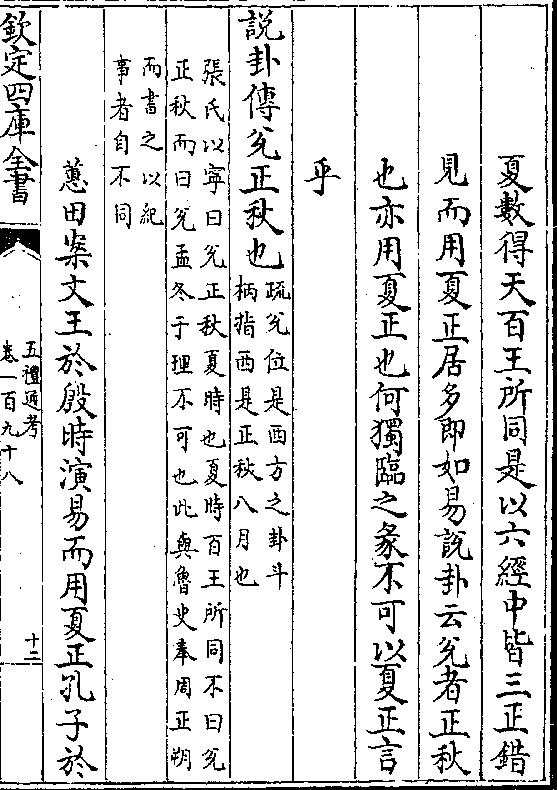 夏數得天百王所同是以六經中皆三正錯
見而用夏正居多即如易説卦云兊者正秋
也亦用夏正也何獨臨之彖不可以夏正言
乎
説卦傳兊正秋也
疏兊位是西方之卦斗
柄指西是正秋八月也
張氏以寧曰兊正秋夏時也夏時百王所同不曰兊
正秋而曰兊孟冬于理不可也此與魯史奉周正朔
而書之以紀
事者自不同
蕙田案文王於殷時演易而用夏正孔子於
欽定四庫全書
五禮通考
卷一百九十八
十二